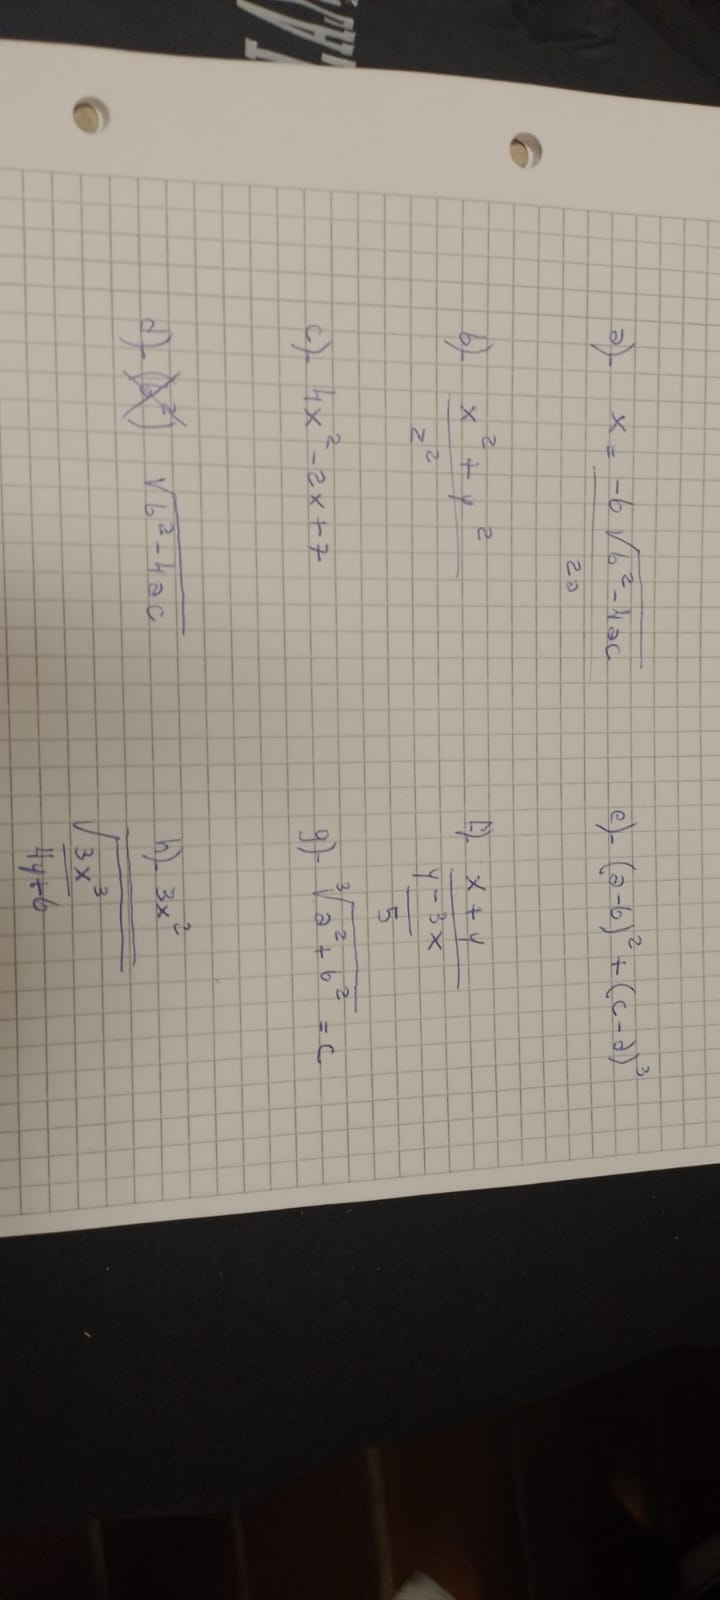 a). x = -b √(b² - 4ac)
2a
b). x² + y²
z²
c). 4x² - 2x + 7
d). √(b² - 4ac)
e). (a-b)² + (c-a)³
f). x + y
y - 3x
5
g). ³√(a² + b²) = c
h). 3x²
√(3x³
4y+6)